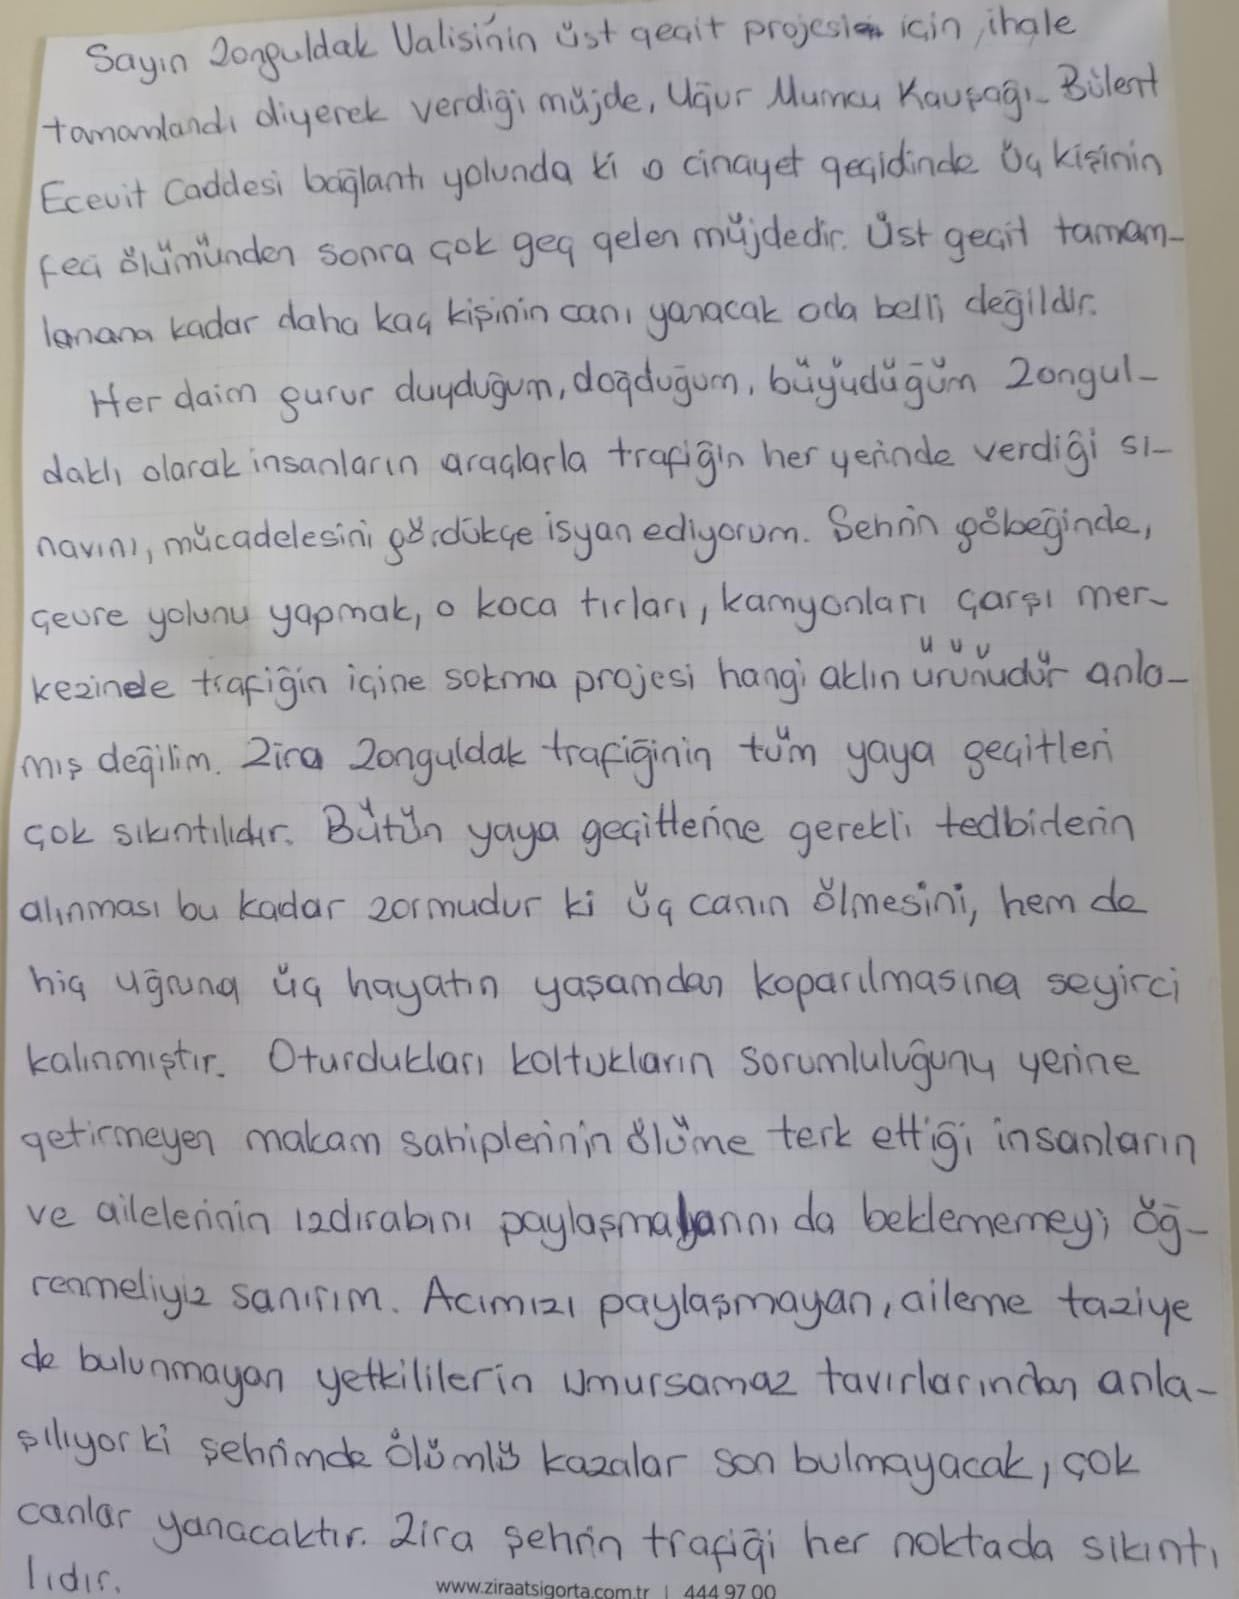 Sayın Zonguldak Valisinin üst geçit projesi için, ihale
tamamlandı diyerek verdiği müjde, Uğur Mumcu Kavşağı- Bülent
Ecevit Caddesi bağlantı yolunda ki o cinayet geçidinde Üç kişinin
feci ölümünden sonra çok geç gelen müjdedir. Üst geçit tamam-
lanana kadar daha kaç kişinin canı yanacak oda belli değildir.
Her daim gurur duyduğum, doğduğum, büyüdüğüm Zongul-
daklı olarak insanların araçlarla trafiğin her yerinde verdiği sı-
navını, mücadelesini gördükçe isyan ediyorum. Şehrin göbeğinde,
çevre yolunu yapmak, o koca tırları, kamyonları çarşı mer-
kezinde trafiğin içine sokma projesi hangi aklın ürünüdür anla-
mış değilim. Zira Zonguldak trafiğinin tüm yaya geçitleri
çok sıkıntılıdır. Bütün yaya geçitlerine gerekli tedbirlerin
alınması bu kadar zormudur ki üç canın ölmesini, hem de
hiç uğruna üç hayatın yaşamdan koparılmasına seyirci
kalınmıştır. Oturdukları koltukların sorumluluğunu yerine
getirmeyen makam sahiplerinin ölüme terk ettiği insanların
ve ailelerinin ızdırabını paylaşmalarını da beklememeyi öğ-
renmeliyiz sanırım. Acımızı paylaşmayan, aileme taziye
de bulunmayan yetkililerin umursamaz tavırlarından anla-
şılıyor ki şehrimde ölümlü kazalar son bulmayacak, çok
canlar yanacaktır. Zira şehrin trafiği her noktada sıkıntı
lıdır.
www.ziraatsigorta.com.tr | 444 97 00